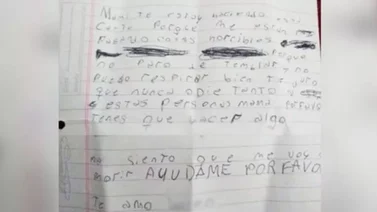 Mami te estoy haciendo esta
Carta Porque me estan
Pasando cosas horribles
Porque
no Paro de temblar y no
Puedo respirar bien te juro
que nunca odie tanto a
estas Personas mama
Tenes que hacer algo
siento que me voy a
morir AYUDAME POR FAVO
Te amo